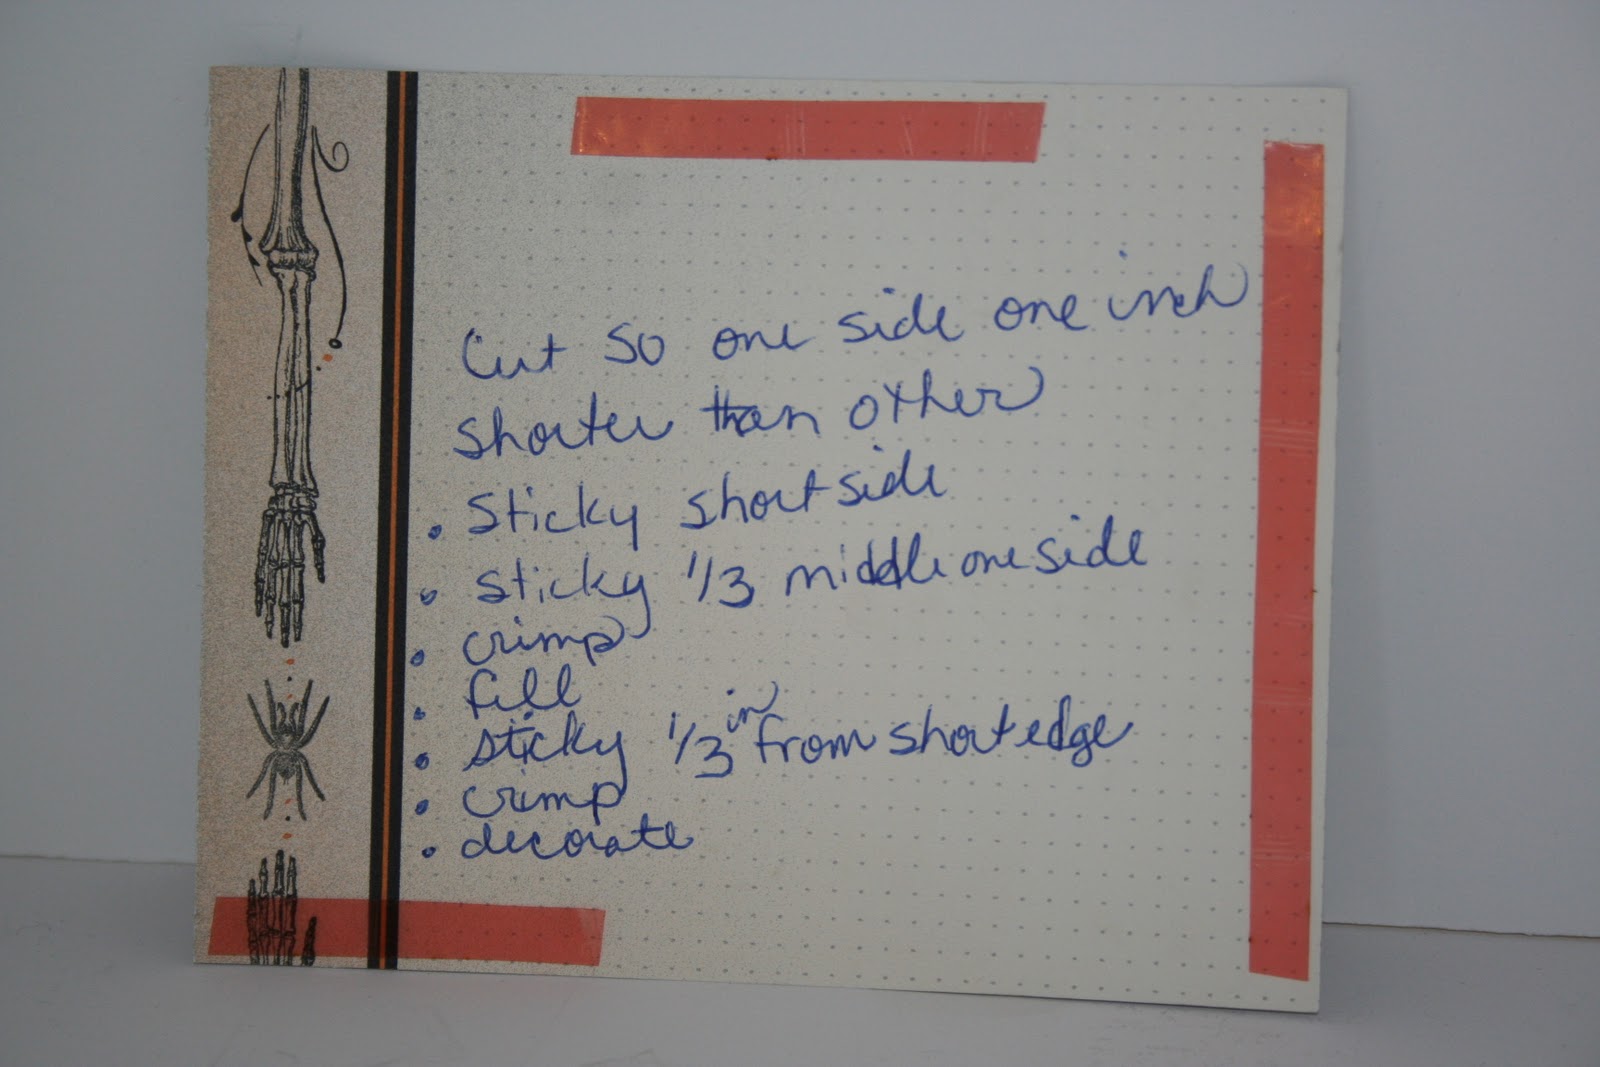 Cut so one side one inch
shorter than other
• sticky short side
• sticky 1/3 middle one side
• crimp
• fill
• sticky 1/3 in from short edge
• crimp
• decorate